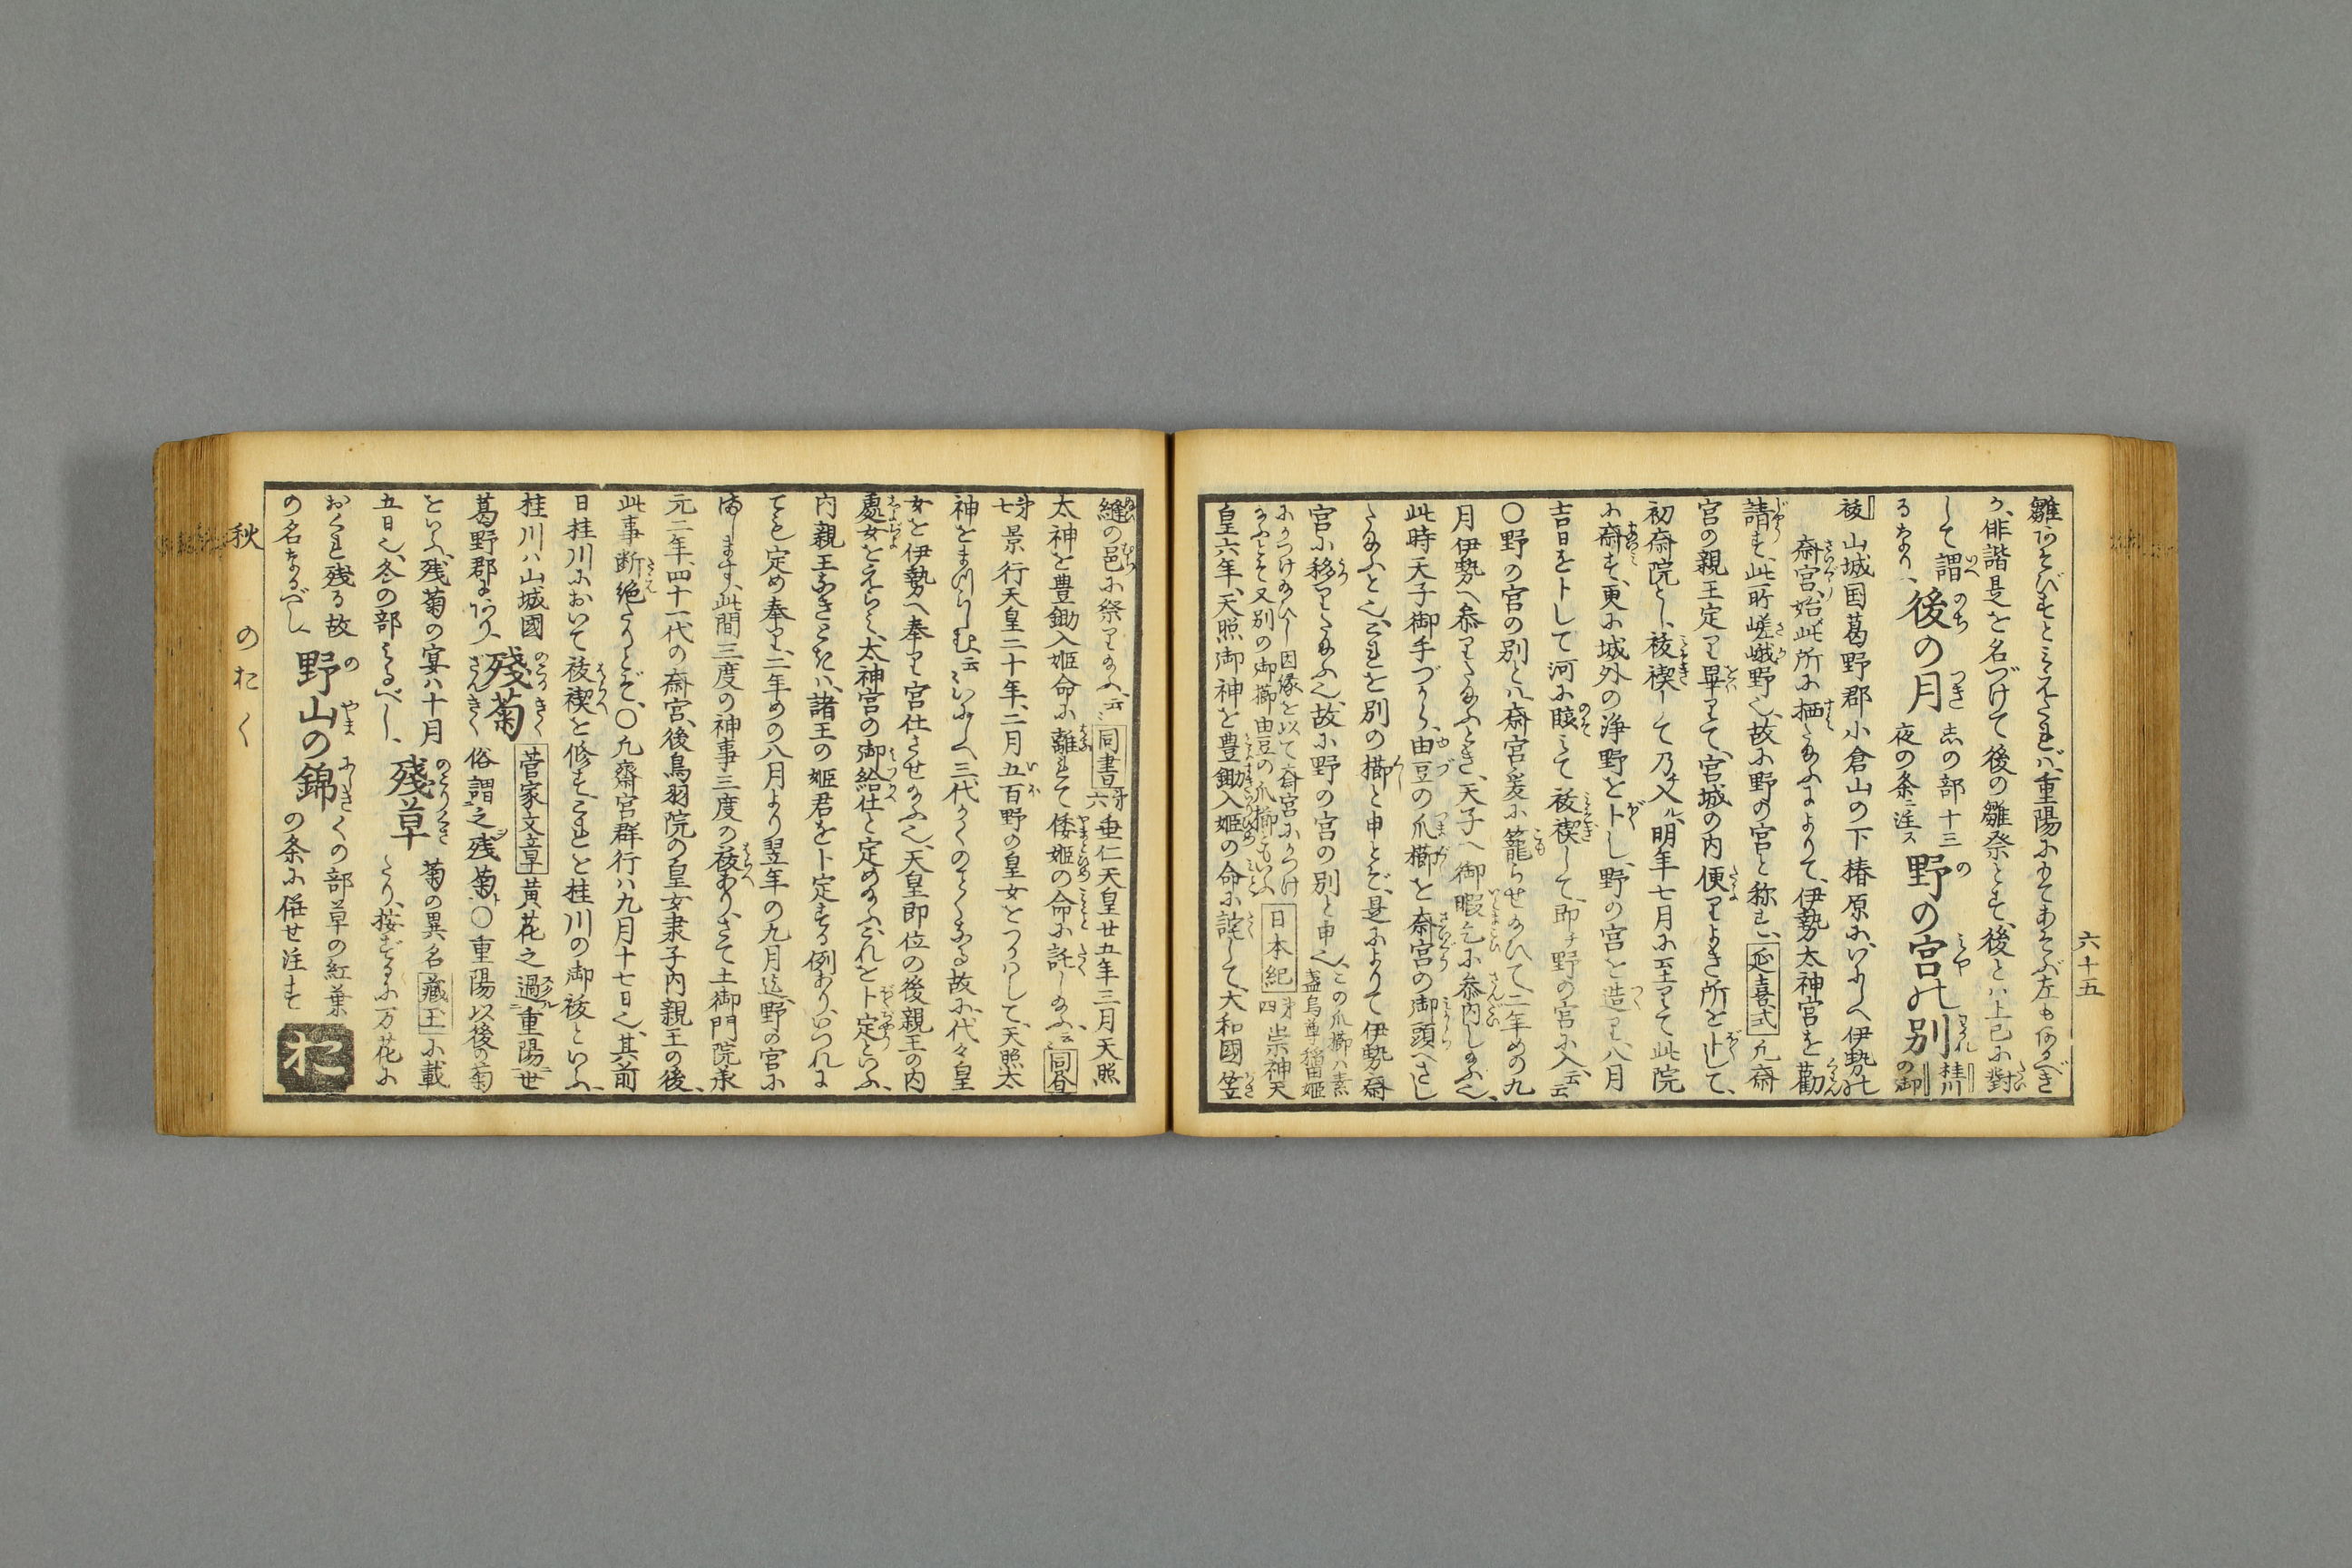 雛あそびすとみえたれバ、重陽にもてあそぶ左も有べき
か、俳諧是を名づけて後の雛祭とす、後とハ上巳に對
して謂 後の月 志の部十三
夜の条ニ注ス
るなり、
野の宮の別 桂川
の御
祓 山城国葛野郡小倉山の下椿原に、いにしへ伊勢の
斎宮、始此所に栖たまふによりて、伊勢太神宮を勸
請す、此所嵯峨野也、故に野の宮と称す、延喜式 凡斎
宮の親王定り畢りて、宮城の内便りよき所を卜して、
初斎院とし、祓禊して乃チ入ル、明年七月に至りて此院
に斎す、更に城外の浄野を卜し、野の宮を造り、八月
吉日を卜して河に臨みて祓禊して、即チ野の宮に入、云云
〇野の宮の別とハ、斎宮爰に籠らせ給ひて、二年めの九
月伊勢へ参りたまふとき、天子へ御暇乞に参内し給ふ也、
此時天子御手づから、由豆の爪櫛を斎宮の御頭へさし
たまふと也、これを別の櫛と申とぞ、是によりて伊勢斎
宮に移りたまふ也、故に野の宮の別と申也 この爪櫛ハ素
盞烏尊稲田姫
にさづけ給ひし因縁を以て斎宮にさづけ
給ふとぞ又別の御櫛由豆の爪櫛ともいふ 日本紀 第四 崇神天
皇六年、天照御神を豊鋤入姫の命に託して、大和國笠
縫の邑に祭り給ふ、云云 同書 第六 垂仁天皇廿五年三月天照
太神を豊鋤入姫命に離ちて倭姫の命に託し給ふ、云云 同 第
七 景行天皇二十年、二月五百野の皇女をつかハして、天照太
神をまつらしむ、云云 いにしへ三代かくのごとくなる故に、代々皇
女を伊勢へ奉り宮仕させ給ふ也、天皇即位の後親王の内
處女をえらミ、太神宮の御給仕と定め給ふ、これを卜定といふ、
内親王なきときハ、諸王の姫君を卜定する例あり、いつれに
ても定め奉り、二年めの八月より翌年の九月迄、野の宮に
まします、此間三度の神事三度の祓あり、さて土御門院承
元二年、四十一代の斎宮、後鳥羽院の皇女肅子内親王の後、
此事断絶せりとぞ、〇凡齋宮群行ハ九月十七日也、其前
日桂川において祓禊を修す、これを桂川の御祓といふ、
桂川ハ山城國
葛野郡にあり、
殘菊 菅家文章 黃花之過重陽世
俗謂之残菊 〇重陽以後の菊
といふ、残菊の宴ハ十月
五日也、冬の部ミるべし、
殘草 菊の異名 蔵玉 に載
たり、按ずるに万花に
おくれ残る故
の名なるべし
野山の錦 にしきくの部草の紅葉
の条に併せ注す
お
六十五
秋 のおく